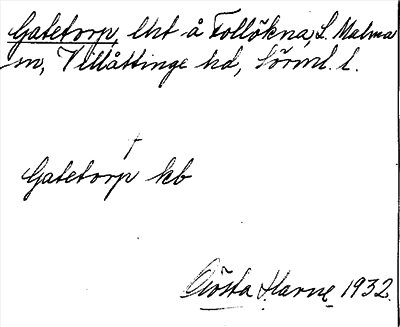 Gatetorp, lht å Follökna, L. Malma
sn, Villåttinge hd, Sörml. l.
Gatetorp kb
Gösta Harne 1932.